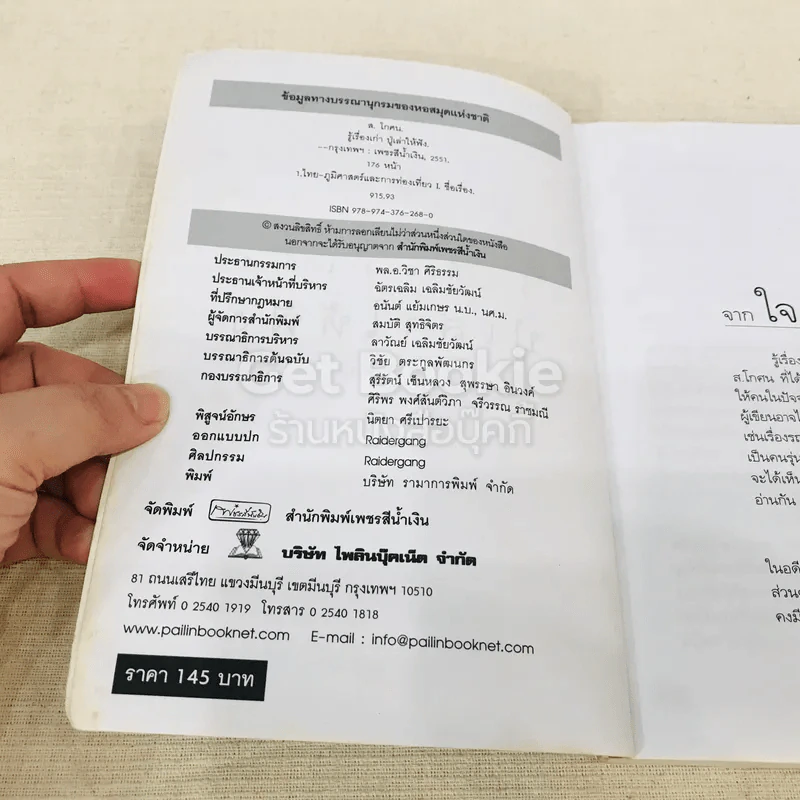 ข้อมูลทางบรรณานุกรมของหอสมุดแห่งชาติ
ส. โกศน.
รู้เรื่องเก่า ปู่เล่าให้ฟัง.
--กรุงเทพฯ : เพชรสีน้ำเงิน, 2551.
176 หน้า
1.ไทย-ภูมิศาสตร์และการท่องเที่ยว I. ชื่อเรื่อง.
915.93
ISBN 978-974-376-268-0
© สงวนลิขสิทธิ์ ห้ามการลอกเลียนไม่ว่าส่วนหนึ่งส่วนใดของหนังสือ
นอกจากจะได้รับอนุญาตจาก สำนักพิมพ์เพชรสีน้ำเงิน
ประธานกรรมการ พล.อ.วิชา ศิริธรรม
ประธานเจ้าหน้าที่บริหาร ฉัตรเฉลิม เฉลิมชัยวัฒน์
ที่ปรึกษากฎหมาย อนันต์ แย้มเกษร น.บ., นศ.ม.
ผู้จัดการสำนักพิมพ์ สมบัติ สุทธิจิตร
บรรณาธิการบริหาร ลาวัณย์ เฉลิมชัยวัฒน์
บรรณาธิการต้นฉบับ วิชัย ตระกูลพัฒนกร
กองบรรณาธิการ สุรีรัตน์ เซ็นหลวง สุพรรษา อินวงค์
ศิริพร พงศ์สันต์วิภา จรีวรรณ ราชมณี
พิสูจน์อักษร นิตยา ศรีเปารยะ
ออกแบบปก Raidergang
ศิลปกรรม Raidergang
พิมพ์ บริษัท รามาการพิมพ์ จำกัด
จัดพิมพ์ สำนักพิมพ์เพชรสีน้ำเงิน
จัดจำหน่าย บริษัท ไพลินบุ๊คเน็ต จำกัด
81 ถนนเสรีไทย แขวงมีนบุรี เขตมีนบุรี กรุงเทพฯ 10510
โทรศัพท์ 0 2540 1919 โทรสาร 0 2540 1818
www.pailinbooknet.com E-mail : info@pailinbooknet.com
ราคา 145 บาท
Get Bookie
ร้านหนังสือบุ๊คกี้
จาก ใจ
รู้เรื่อง
ส.โกศน ที่ได้
ให้คนในปัจจ
ผู้เขียนอาจไ
เช่นเรื่องรถ
เป็นคนรุ่น
จะได้เห็น
อ่านกัน
ในอดี
ส่วน
คงมี